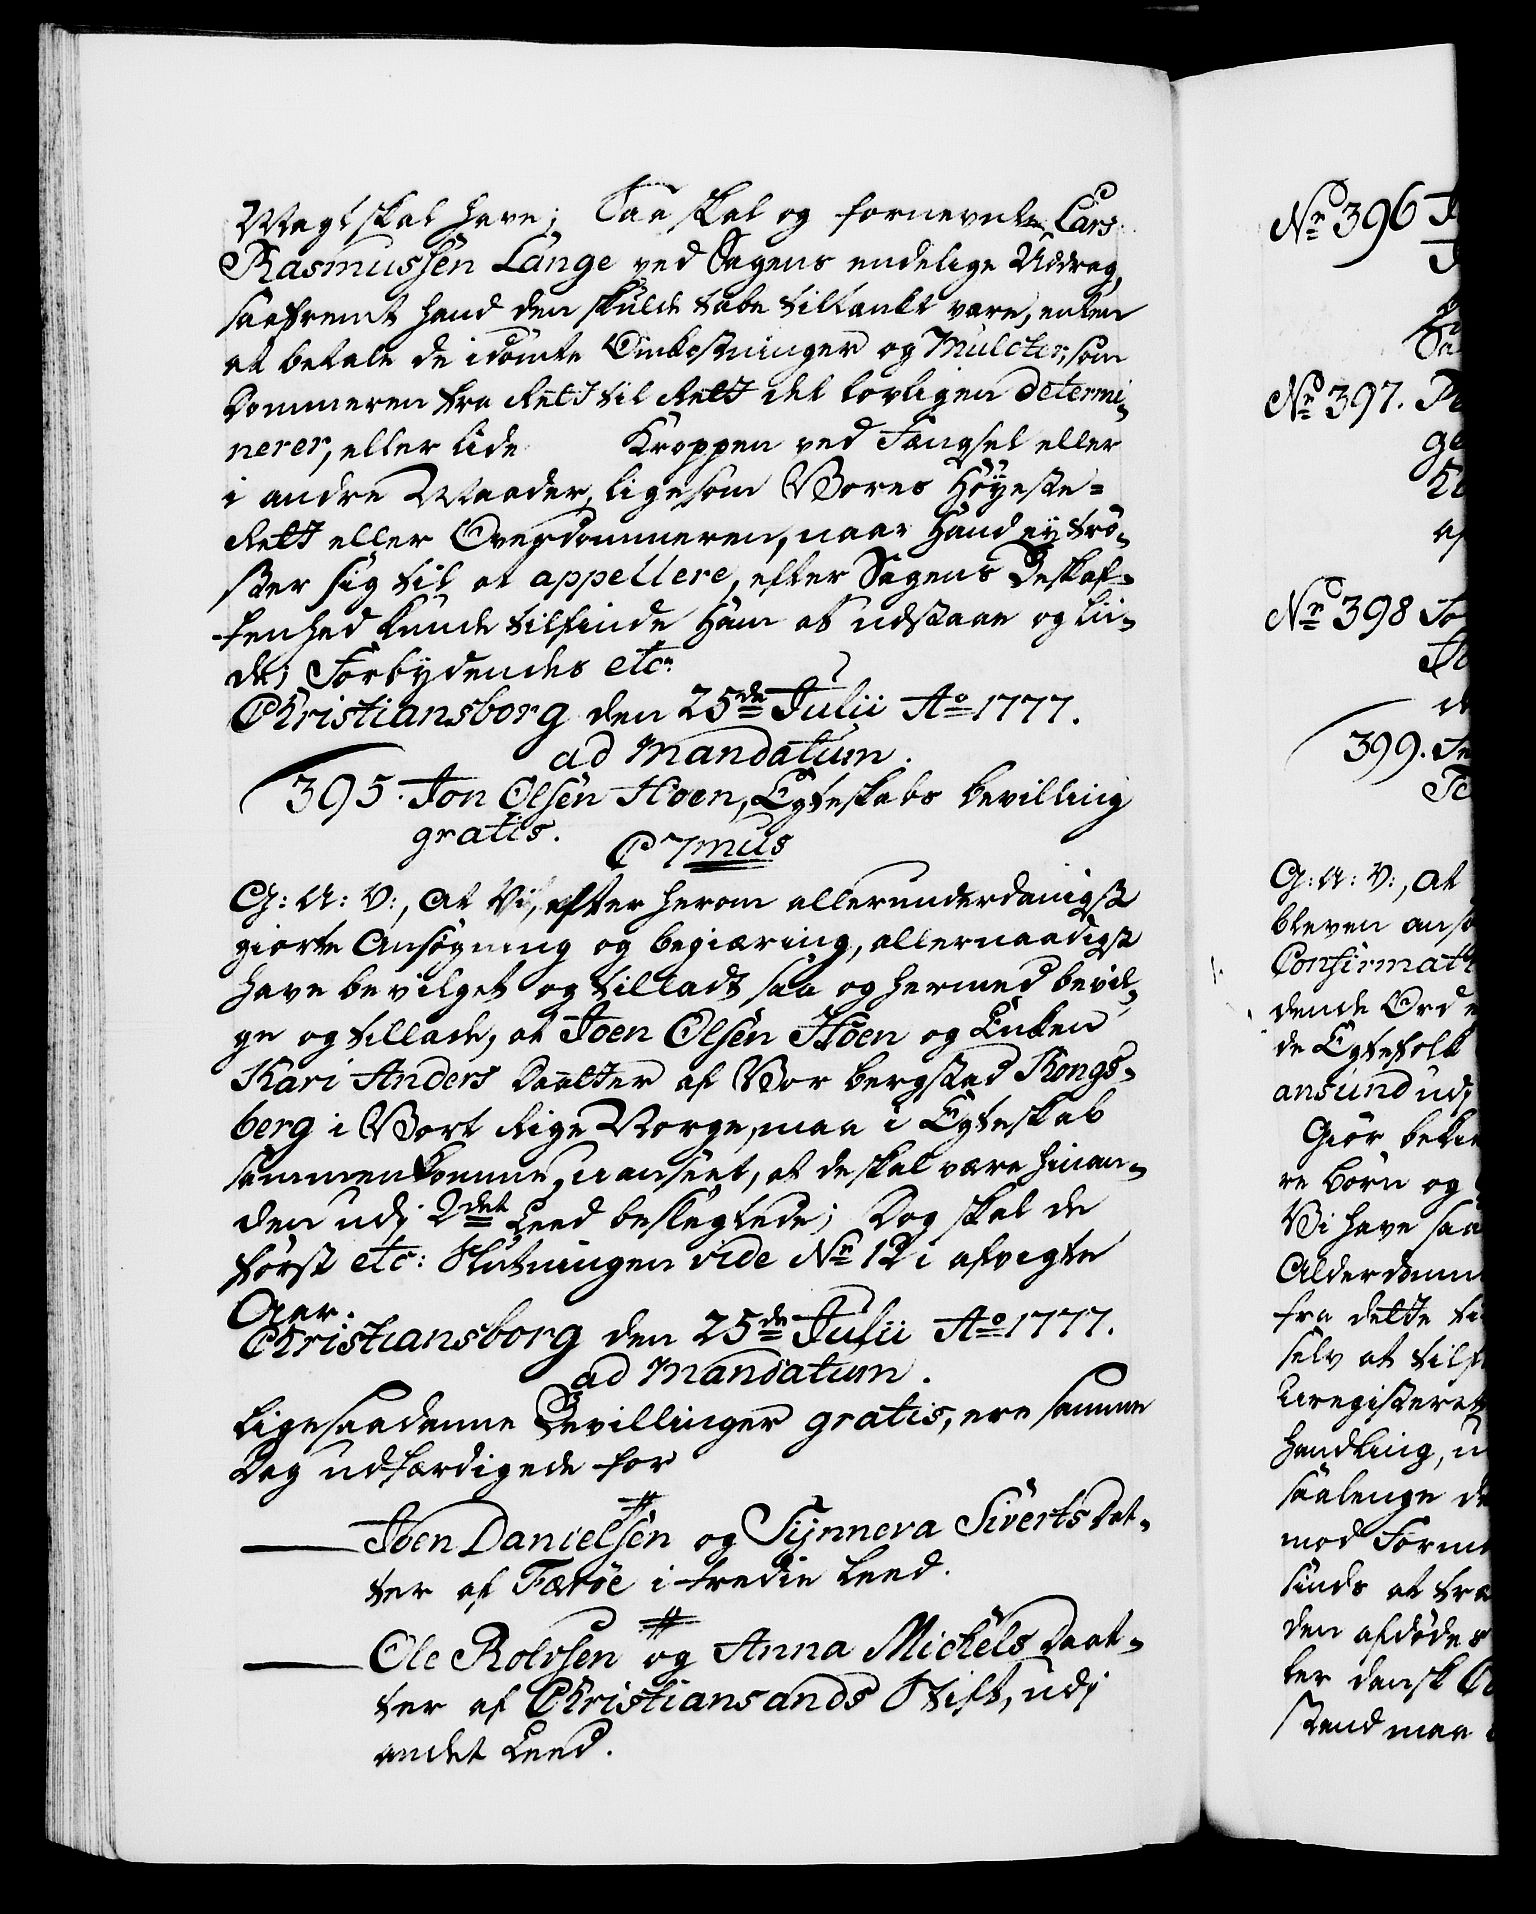 Magt skal have; Saa skal og fornevnte Lars
Rasmussen Lange ved Sagens endelige Uddrag,
saafremt hand den skulde tabe tiltænkt være, enten
at betale de idømte Omkostninger og Mulcter, som
Dommeren fra Rett til Rett det lovligen determi-
nerer, eller lide Kroppen ved Fængsel eller
i andre Maader, ligesom Vores Høyeste-
Rett eller Overdommeren, naar hand ey trø-
ster sig til at appellere, efter Sagens Beskaf-
fenhed kunde tilfinde ham at udstaae og lii-
de; Forbydendes etc:
Christiansborg den 25de Julii Ao 1777.
ad Mandatum.
395. Jon Olsen Hoen, Egteskabs bevilling
gratis.
C 7mus
G: A: V:, at Vi, efter herom allerunderdanigst
giorte Ansøgning og begiæring, allernaadigst
have bevilget og tilladt saa og hermed bevil-
ge og tillade, at Joen Olsen Hoen og Enken
Kari Anders Daatter af Vor bergstad Kongs-
berg i Vort Rige Norge, maa i Egteskab
sammenkomme, uanseet, at de skal være hinan-
den udj 2det Leed beslegtede; Dog skal de
først etc: Slutningen vide No 12 i afvigte
Aar.
Christiansborg den 25de Julii Ao 1777.
ad Mandatum.
Ligesaadanne Bevillinger gratis, ere samme
Dag udfærdigede for
Joen Danielsen og Synneva Siverts Dat-
ter af Færøe i tredie Leed.
Ole Rolvsen og Anna Michels Daat-
ter af Christiansands Stift, udj
andet Leed.
No 396
No 397.
No 398
399.
G: A: V:, at
bleven
dende Ord
de Egtefolk
ansund udj
Giør
re Børn og
Vi have saa
fra dette
selv at
handling,
saalenge
mod
sinds at
den afdødes
ler dansk
stand maa